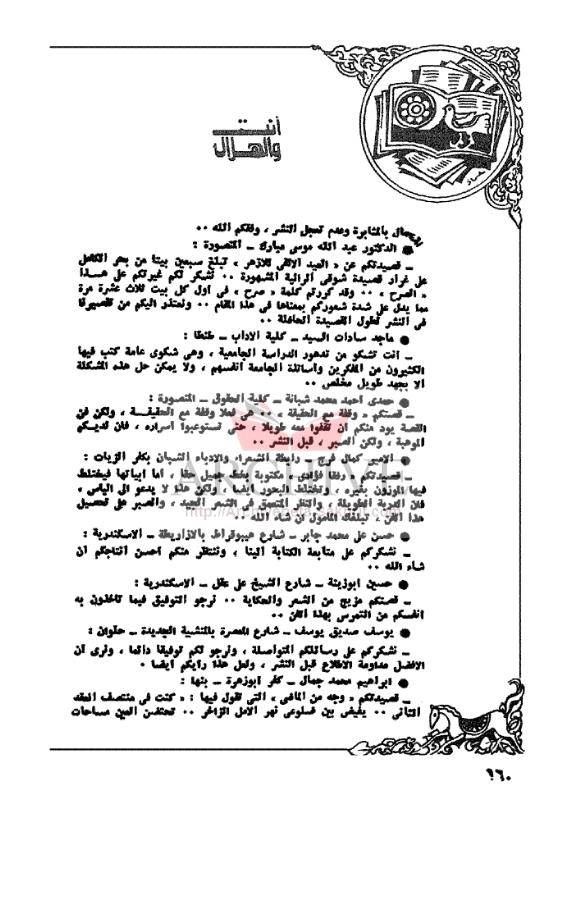 أنت
والهلال
بالمثابرة وعدم تعجل النشر ، وفقكم الله ..
● الدكتور عبد الله موسى مبارك ـ المنصورة :
ـ قصيدتكم عن « العيد الألفى للأزهر » تبلغ سبعين بيتا من بحر الكامل
على غرار قصيدة شوقى الرائية المشهورة .. نشكر لكم غيرتكم على هذا
« الصرح » .. وقد كررتم كلمة « صرح » فى أول كل بيت ثلاث عشرة مرة
مما يدل على شدة شعوركم بمعناها فى هذا المقام .. ونعتذر اليكم من تقصيرنا
فى النشر لطول القصيدة الحافلة ..
● ماجد سادات السيد ـ كلية الآداب ـ طنطا :
ـ أنت تشكو من تدهور الدراسة الجامعية ، وهى شكوى عامة كتب فيها
الكثيرون من المفكرين وأساتذة الجامعة أنفسهم ، ولا يمكن حل هذه المشكلة
الا بجهد طويل مخلص ..
● حمدى أحمد محمد شبانة ـ كلية الحقوق ـ المنصورة :
ـ قصتكم « وقفة مع الحقيقة » .. هى فعلا وقفة مع الحقيقة ، ولكن فن
القصة يود منكم أن تقفوا معه طويلا ، حتى تستوعبوا أسراره ، فان لديكم
الموهبة ، ولكن الصبر ، قبل النشر ..
● الأمير كمال فرج ـ رابطة الشعراء والأدباء الشبان بكفر الزيات :
ـ قصيدتكم « رفقا فؤادى » مكتوبة بخط جميل حقا ، أما أبياتها فيختلط
فيها الموزون بغيره ، وتختلط البحور أيضا . ولكن هذا لا يدعو الى اليأس ،
فان الدربة الطويلة ، والنظر المتعمق فى الشعر الجيد ، والصبر على تحصيل
هذا الفن ، تبلغك المأمول ان شاء الله ..
● حسن على محمد جابر ـ شارع هيبوقراط بالأزاريطة ـ الاسكندرية :
ـ نشكركم على متابعة الكتابة الينا ، وننتظر منكم أحسن انتاجكم ان
شاء الله ..
● حسين أبوزينة ـ شارع الشيخ على عقل ـ الاسكندرية :
ـ قصتكم مزيج من الشعر والحكاية .. نرجو التوفيق فيما تأخذون به
أنفسكم من التمرس بهذا الفن ..
● يوسف صديق يوسف ـ شارع المعصرة بالمنشية الجديدة ـ حلوان :
ـ نشكركم على رسائلكم المتواصلة ، ونرجو لكم توفيقا دائما ، ونرى أن
الأفضل مداومة الاطلاع قبل النشر ، ولعل هذا رأيكم أيضا .
● ابراهيم محمد جمال ـ كفر أبوزهرة ـ بنها :
ـ قصيدتكم « وجه من الماضى » التى تقول فيها : « كنت فى منتصف العقد
الثانى .. يفيض بين ضلوعى نهر الأمل الزاخر .. تحتضن العين مساحات
١٦٠
ARCHIVE